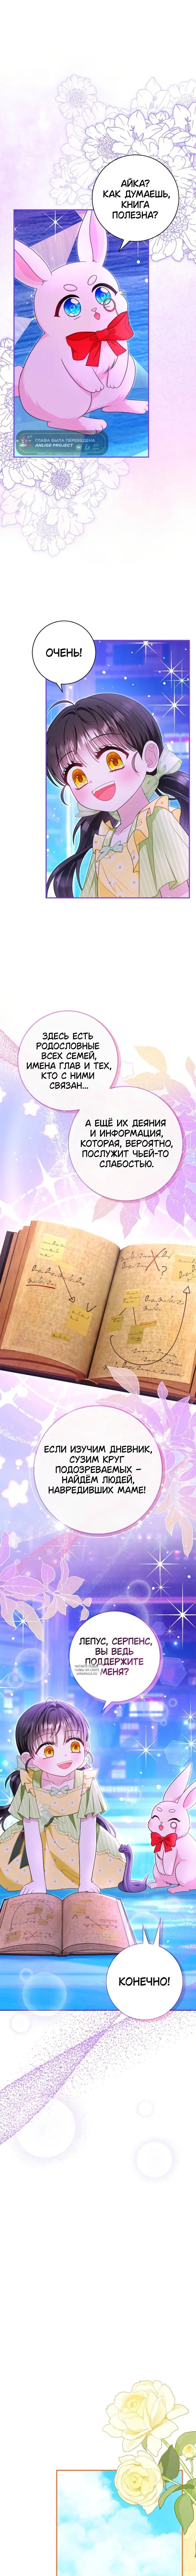 АЙКА?
КАК ДУМАЕШЬ,
КНИГА
ПОЛЕЗНА?
ГЛАВА БЫЛА ПЕРЕВЕДЕНА
ANLIGE PROJECT
ОЧЕНЬ!
ЗДЕСЬ ЕСТЬ
РОДОСЛОВНЫЕ
ВСЕХ СЕМЕЙ,
ИМЕНА ГЛАВ И ТЕХ,
КТО С НИМИ
СВЯЗАН...
А ЕЩЁ ИХ ДЕЯНИЯ
И ИНФОРМАЦИЯ,
КОТОРАЯ, ВЕРОЯТНО,
ПОСЛУЖИТ ЧЬЕЙ-ТО
СЛАБОСТЬЮ.
ЕСЛИ ИЗУЧИМ ДНЕВНИК,
СУЗИМ КРУГ
ПОДОЗРЕВАЕМЫХ –
НАЙДЁМ ЛЮДЕЙ,
НАВРЕДИВШИХ МАМЕ!
ЛЕПУС, СЕРПЕНС,
ВЫ ВЕДЬ
ПОДДЕРЖИТЕ
МЕНЯ?
КОНЕЧНО!